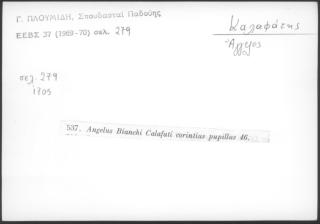 Γ. ΠΛΟΥΜΙΔΗ, Σπουδασταί Παδούης
ΕΕΒΣ 37 (1969-70) σελ. 279
Καλαφάτης
Άγγελος
σελ. 279
1705
537. Angelus Bianchi Calafati corintius pupillus 46.